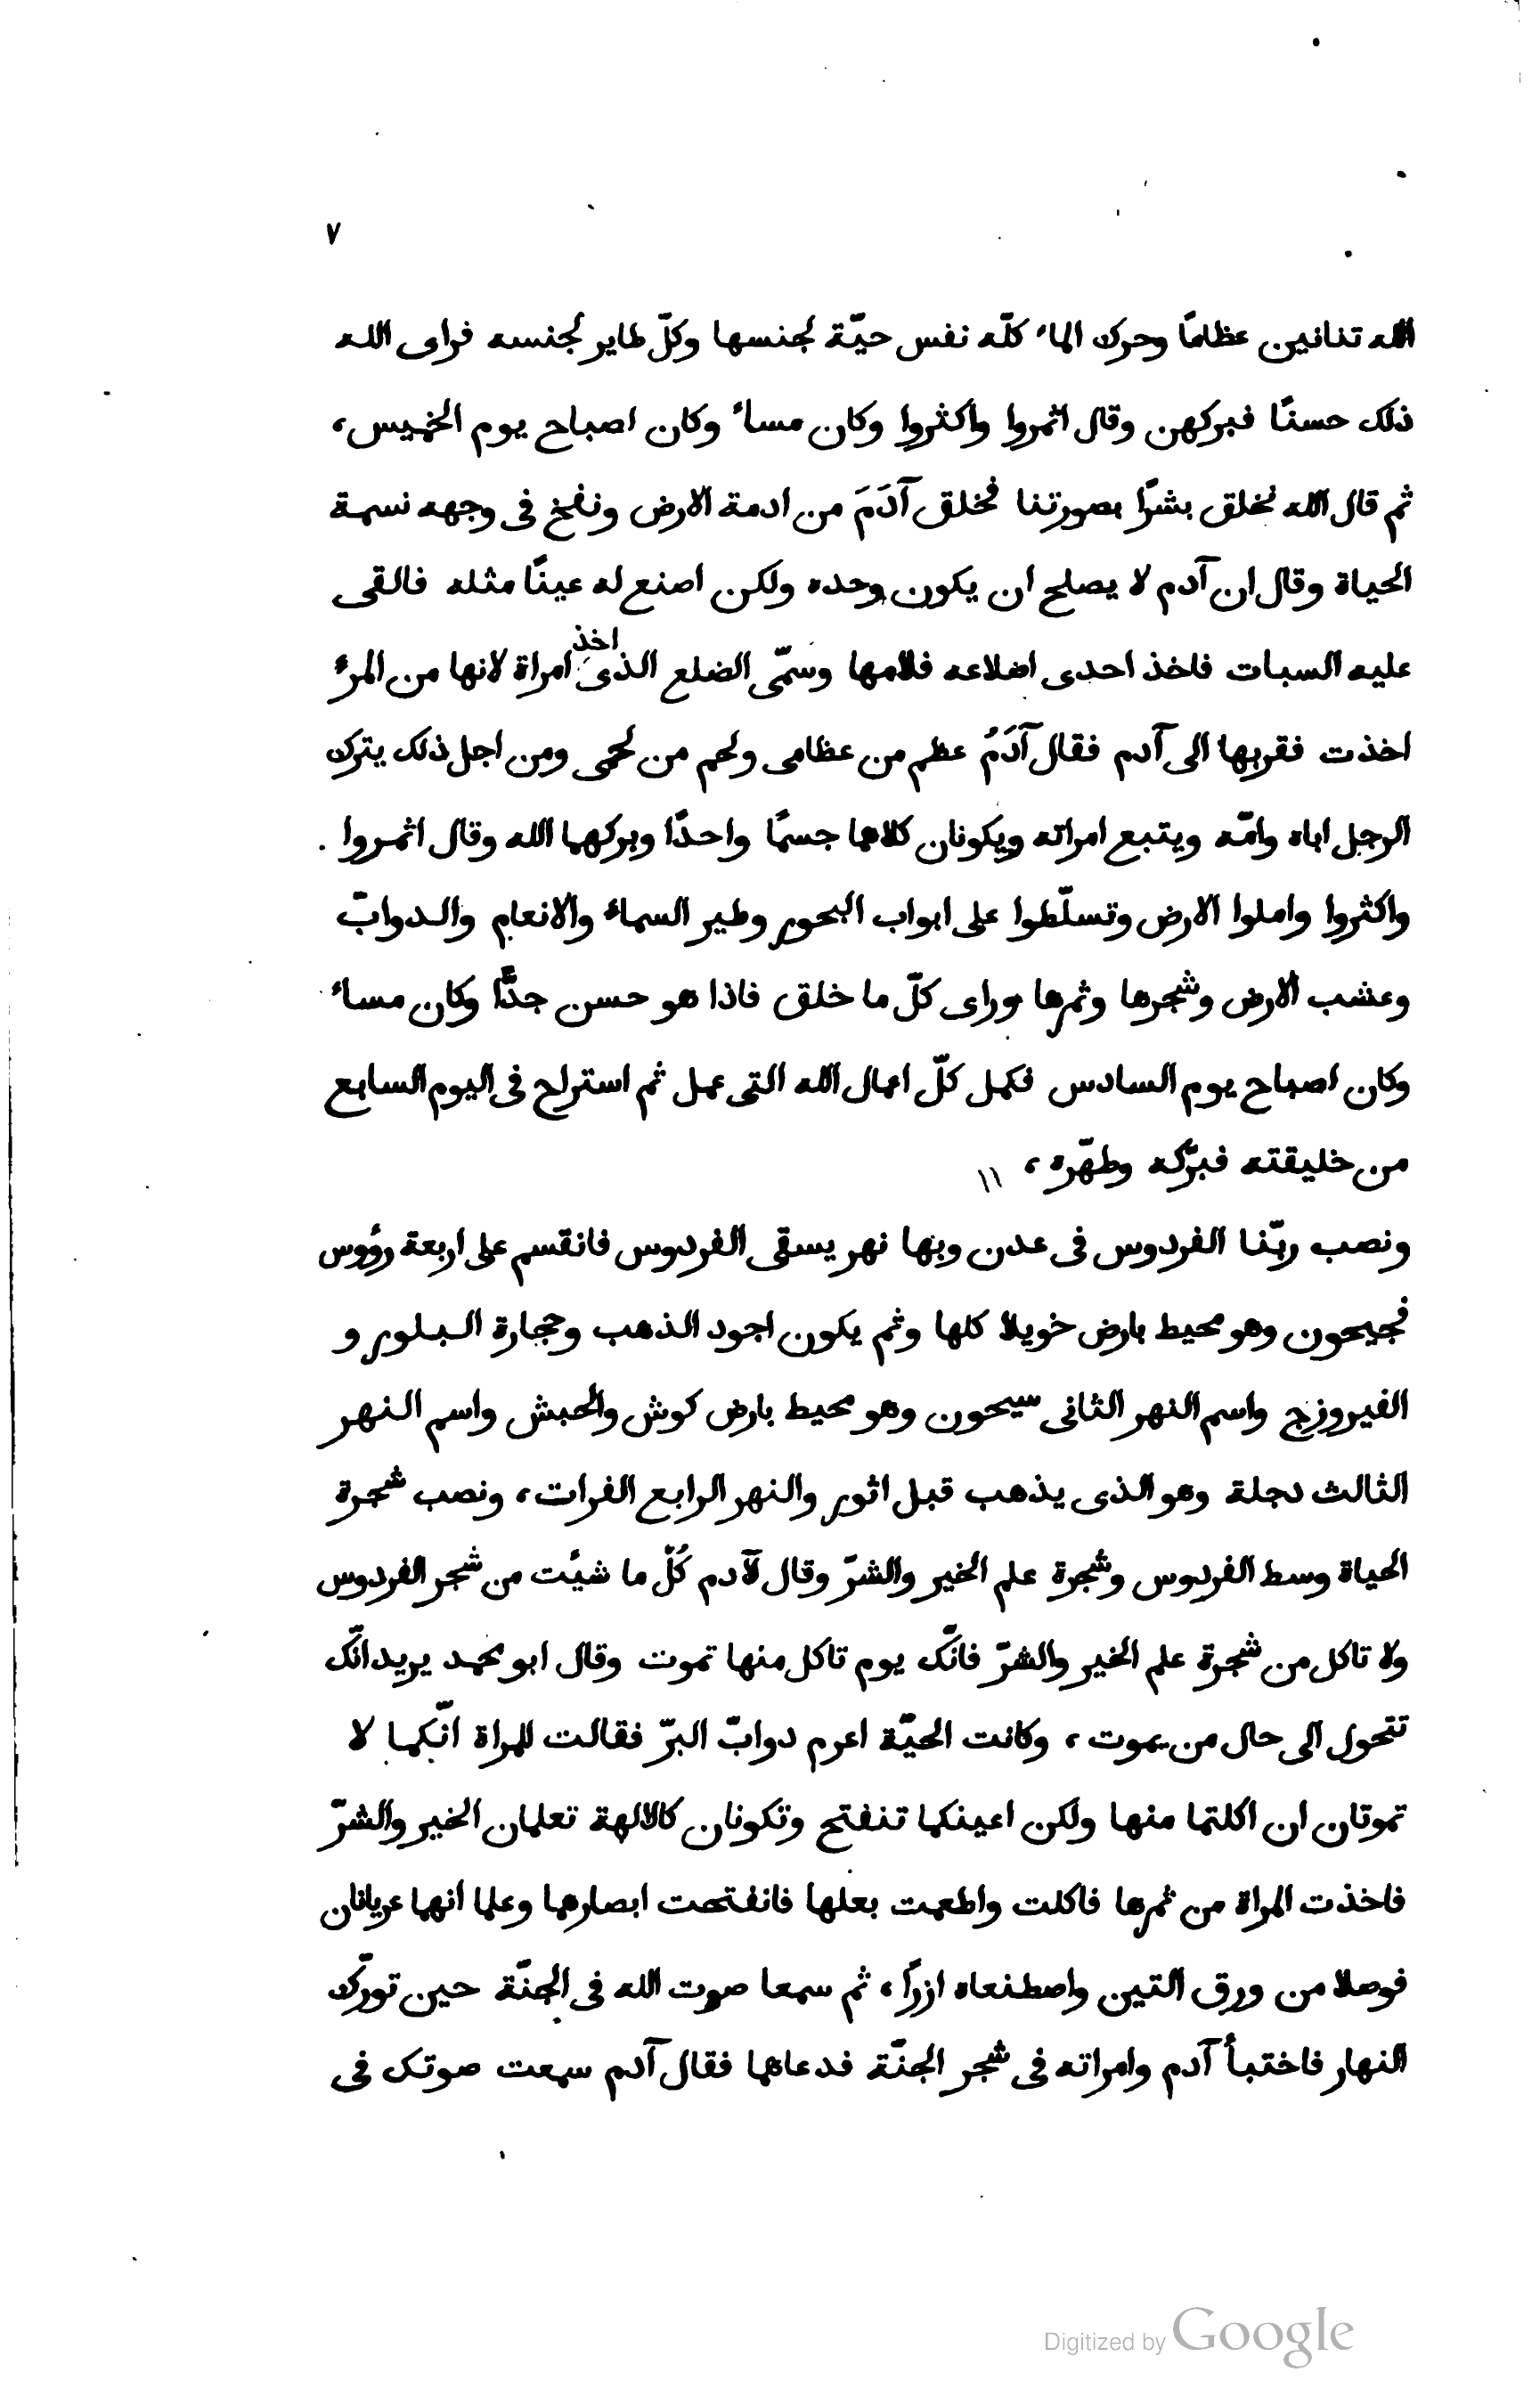 ٧
الله تنانين عظامًا وحرك الماء كلّه نفس حيّة لجنسها وكلّ طاير لجنسه فراى الله
ذلك حسنًا فبركهن وقال اثمروا واكثروا وكان مساءً وكان اصباح يوم الخميس،
ثم قال الله نخلق بشرًا بصورتنا فخلق آدَمَ من ادمة الارض ونفخ فى وجهه نسمة
الحياة وقال ان آدم لا يصلح ان يكون وحده ولكن اصنع له عينًا مثله فالقى
عليه السبات فاخذ احدى اضلاعه فلامها وسمّى الضلع الذى اخذ امراة لانها من المرءِ
اخذت فقربها الى آدم فقال آدَمُ عظم من عظامى ولحم من لحمى ومن اجل ذلك يترك
الرجل اباه وامّه ويتبع امراته ويكونان كلاهما جسمًا واحدًا وبركهما الله وقال اثمروا
واكثروا واملوا الارض وتسلّطوا على ابواب البحور وطير السماء والانعام والدوابّ
وعشب الارض وشجرها وثمرها وراى كلّ ما خلق فاذا هو حسن جدًّا وكان مساءً
وكان اصباح يوم السادس فكمل كلّ اعمال الله التى عمل ثم استراح فى اليوم السابع
من خليقته فبرّكه وطهّره، \\
ونصب ربّنا الفردوس فى عدن وبها نهر يسقى الفردوس فانقسم على اربعة رؤوس
فجيحون وهو محيط بارض خويلا كلها وثم يكون اجود الذهب وحجارة البلور و
الفيروزج واسم النهر الثانى سيحون وهو محيط بارض كوش والحبش واسم النهر
الثالث دجلة وهو الذى يذهب قبل اثور والنهر الرابع الفرات، ونصب شجرة
الحياة وسط الفردوس وشجرة علم الخير والشرّ وقال لآدم كُلْ ما شئت من شجر الفردوس
ولا تاكل من شجرة علم الخير والشرّ فانّك يوم تاكل منها تموت وقال ابو محمد يريد انّك
تتحول الى حال من يموت، وكانت الحيّة اعرم دوابّ البرّ فقالت للمراة انّكما لا
تموتان ان اكلتما منها ولكن اعينكما تنفتح وتكونان كالالهة تعلمان الخير والشرّ
فاخذت المراة من ثمرها فاكلت واطعمت بعلها فانفتحت ابصارهما وعلما انهما عريانان
فوصلا من ورق التين واصطنعاه ازرًا، ثم سمعا صوت الله فى الجنّة حين تورّك
النهار فاختبأ آدم وامراته فى شجر الجنّة فدعاهما فقال آدم سمعت صوتك فى
Digitized by Google